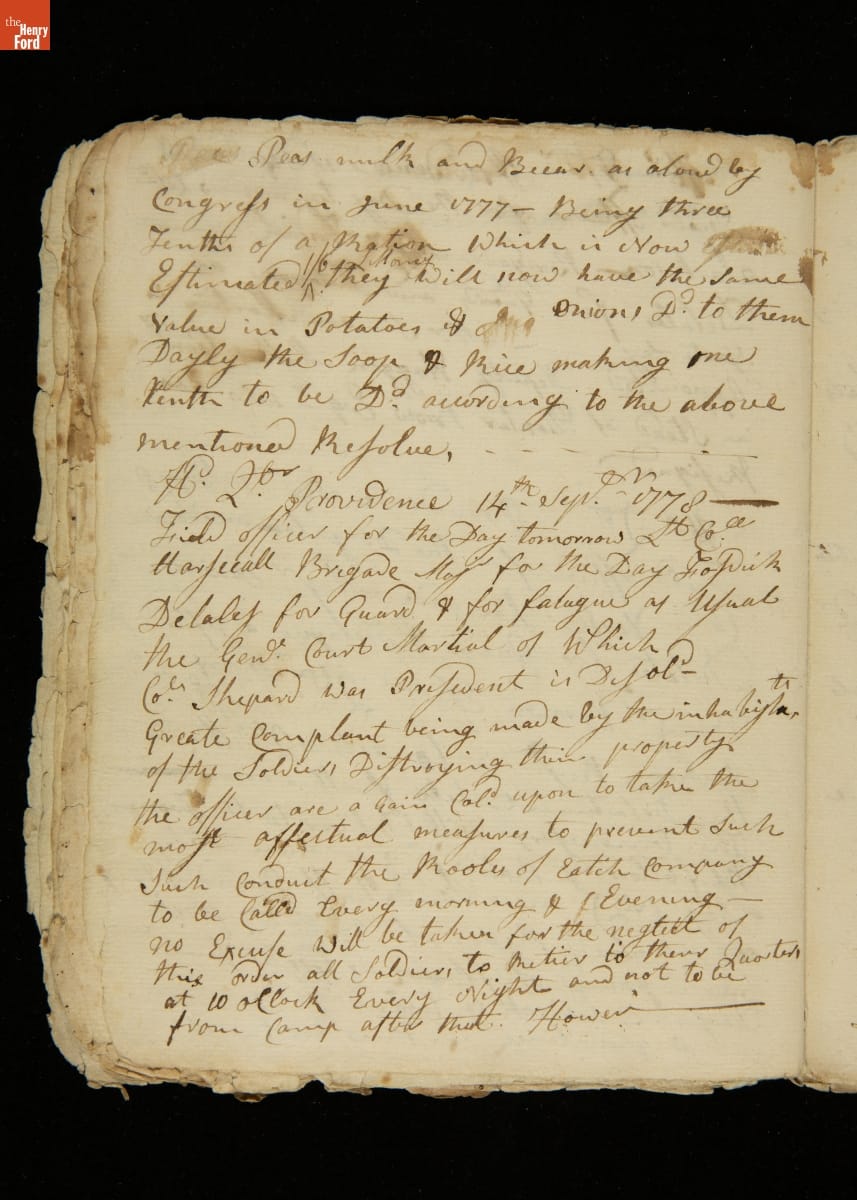 the
Henry
Ford
Peas milk and Beear. as aloud by
Congress in June 1777 – Being three
Tenths of a Ration Which is Now
Estimated they Will now have the same
Money
value in Potatoes & onions Dd. to them
Dayly the Soop & Rice making one
tenth to be Dd. acording to the above
mentioned Resolve,
H. Qrs Providence 14th Sepr. 1778
Field officer for the Day tomorrow Lt Coll
Brigade Majr for the Day Fosdick
Detales for Guard & for fatague as Usual
the Genl. Court Martial of Which
Col. Shepard was President is Desold
Greate Complant being made by the inhabista,ts
of the Soldiers Distroying their property
the officer are a Gain Cald upon to take the
most affectual measures to prevent Such
Such Conduct the Rooles of Eatch Company
to be Calld Every morning & Evening –
no Excuse will be taken for the neglect of
this order all Soldiers to Retier to there Quarters
at 10 oClock Every Night and not to be
from Camp after that.